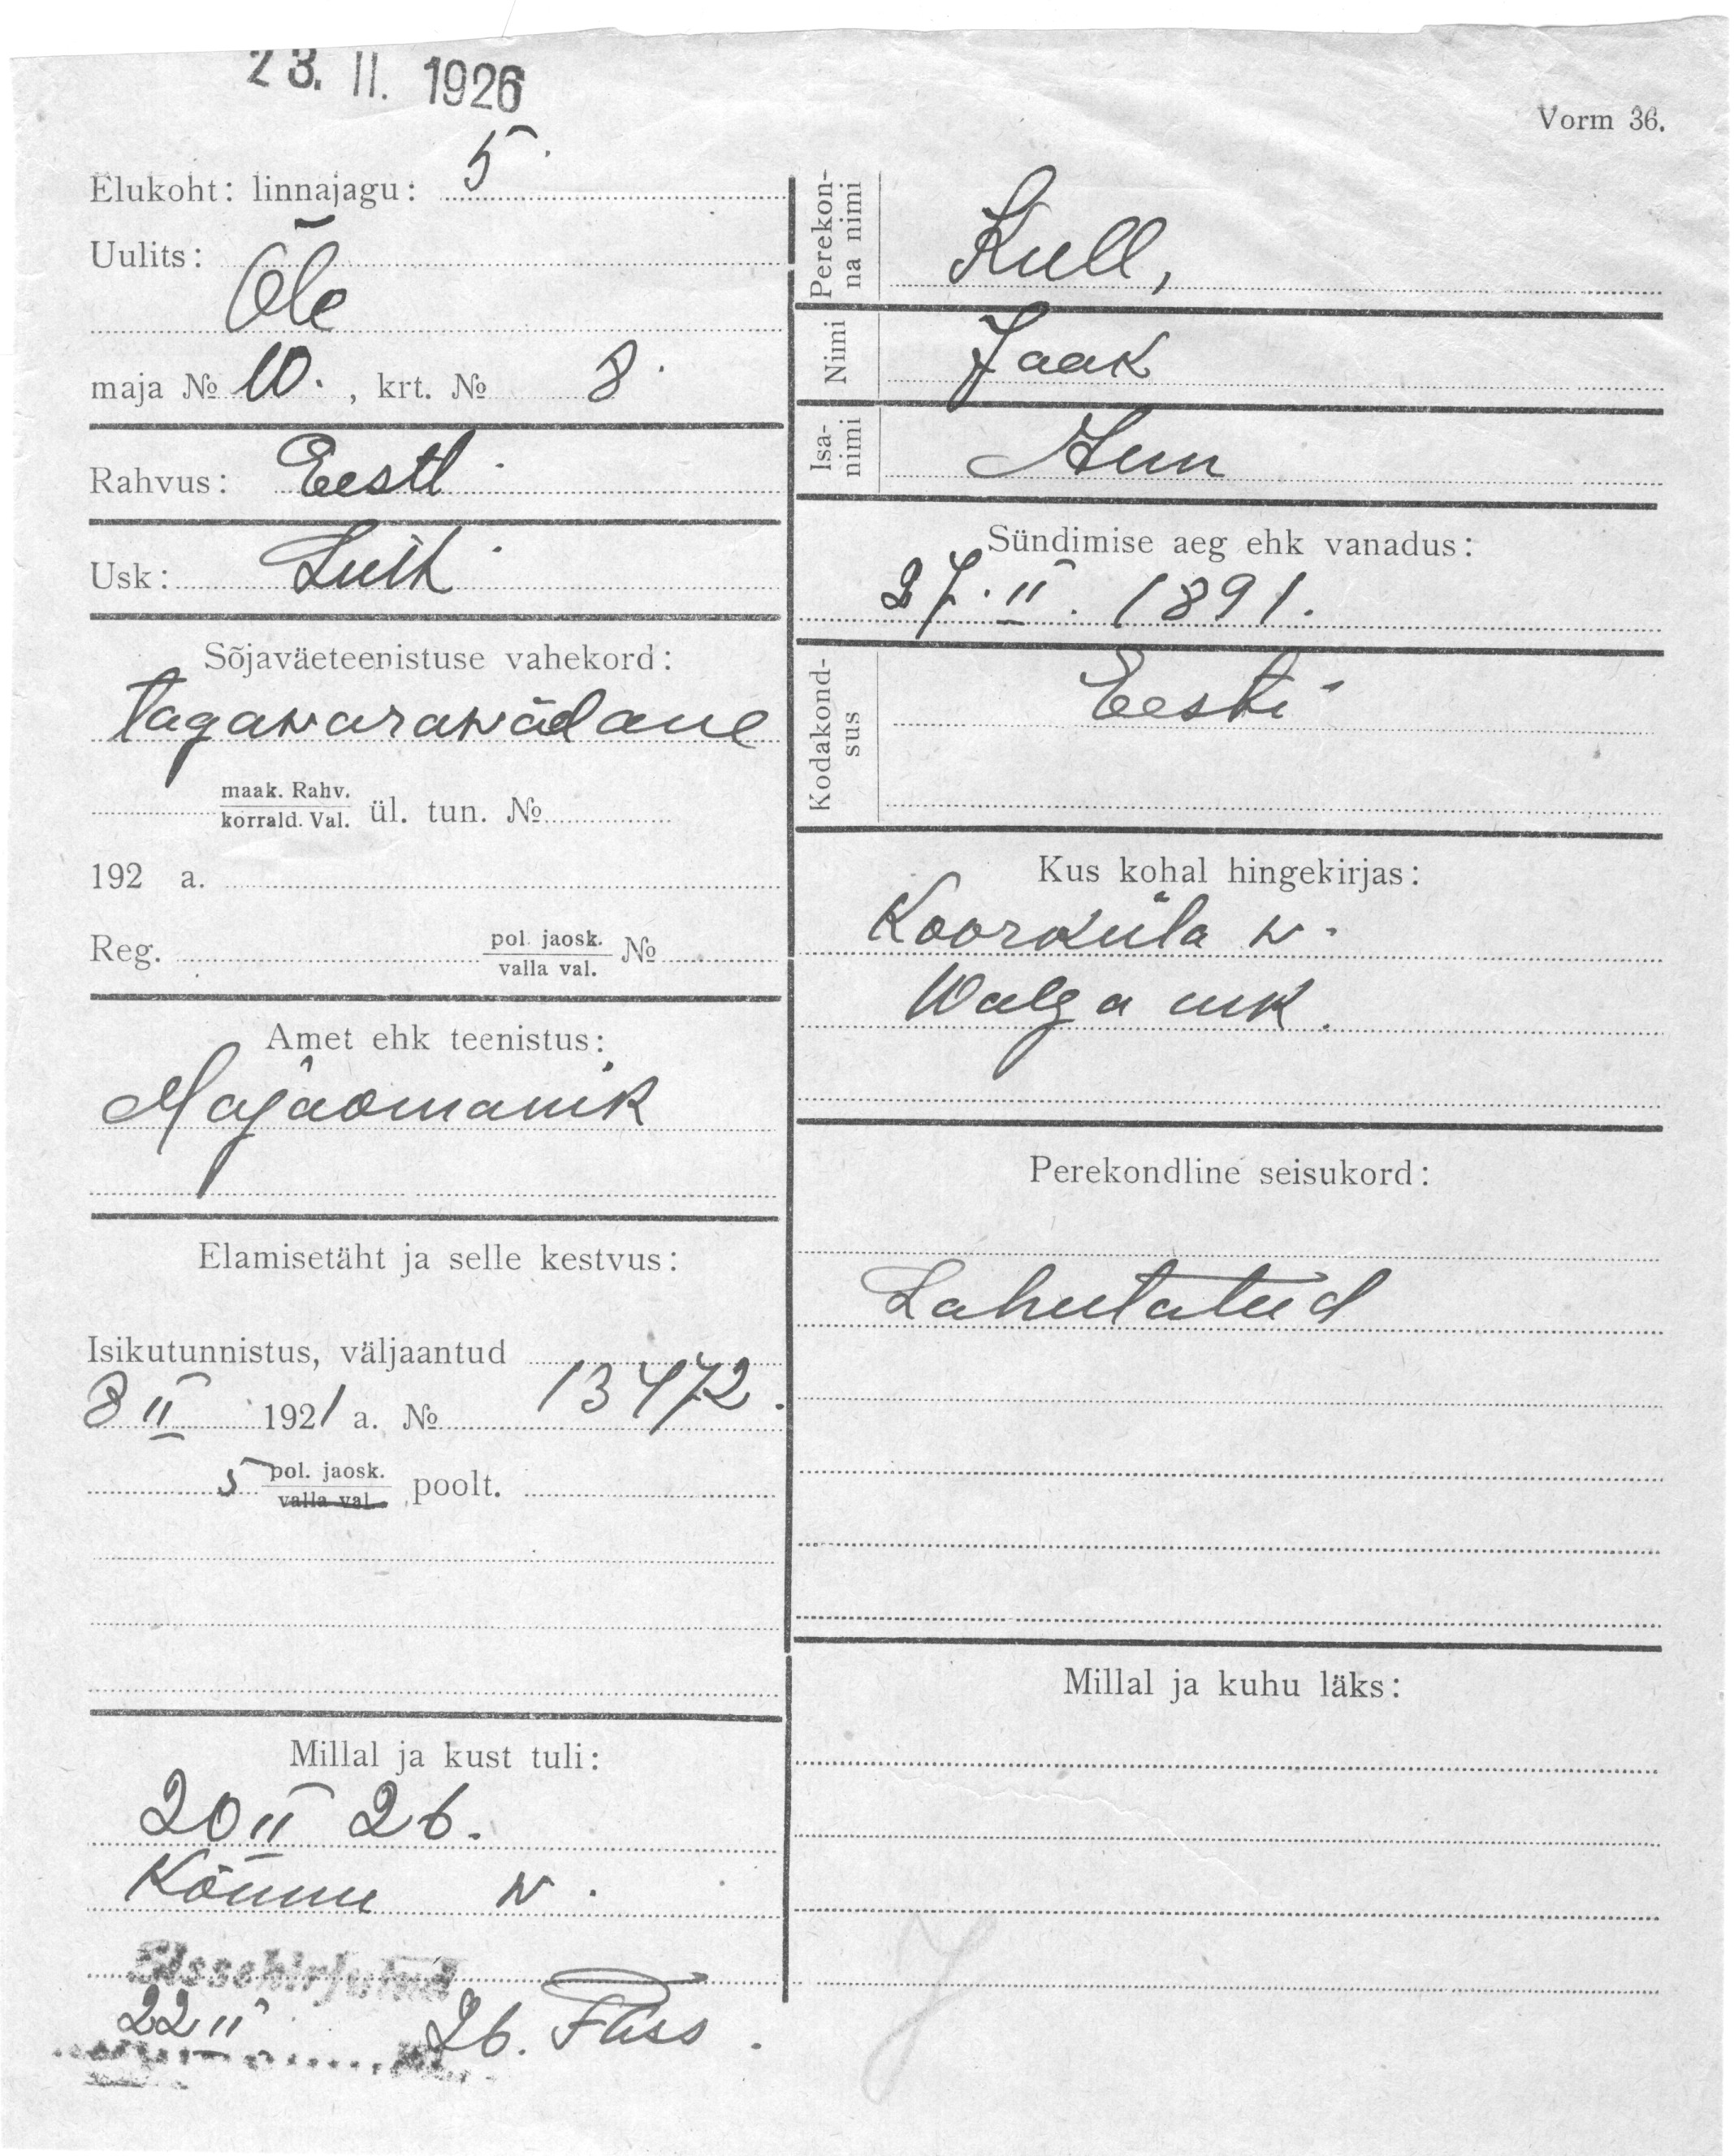 23. II. 1926
Vorm 36.
Elukoht: linnajagu: 5.
Uulits:
Õle
maja № 10. , krt. № 8.
Rahvus: Eesti.
Usk: Luth.
Sõjaväeteenistuse vahekord:
Tagawarawäelane
maak. Rahv.
korrald. Val. ül. tun. №
192 a.
Reg. pol. jaosk.
valla val. №
Amet ehk teenistus:
Majaomanik
Elamisetäht ja selle kestvus:
Isikutunnistus, väljaantud
8 II 1921 a. № 13472.
5 pol. jaosk.
valla val. poolt.
Millal ja kust tuli:
20 II 26.
Kõnnu w.
Sissekirjutud
22 II 26.
Perekon-
na nimi
Kull,
Nimi
Jaak
Isa-
nimi
Sündimise aeg ehk vanadus:
27. II. 1891.
Kodakond-
sus
Eesti
Kus kohal hingekirjas:
Koorküla w.
Walga mk.
Perekondline seisukord:
Lahutatud
Millal ja kuhu läks: